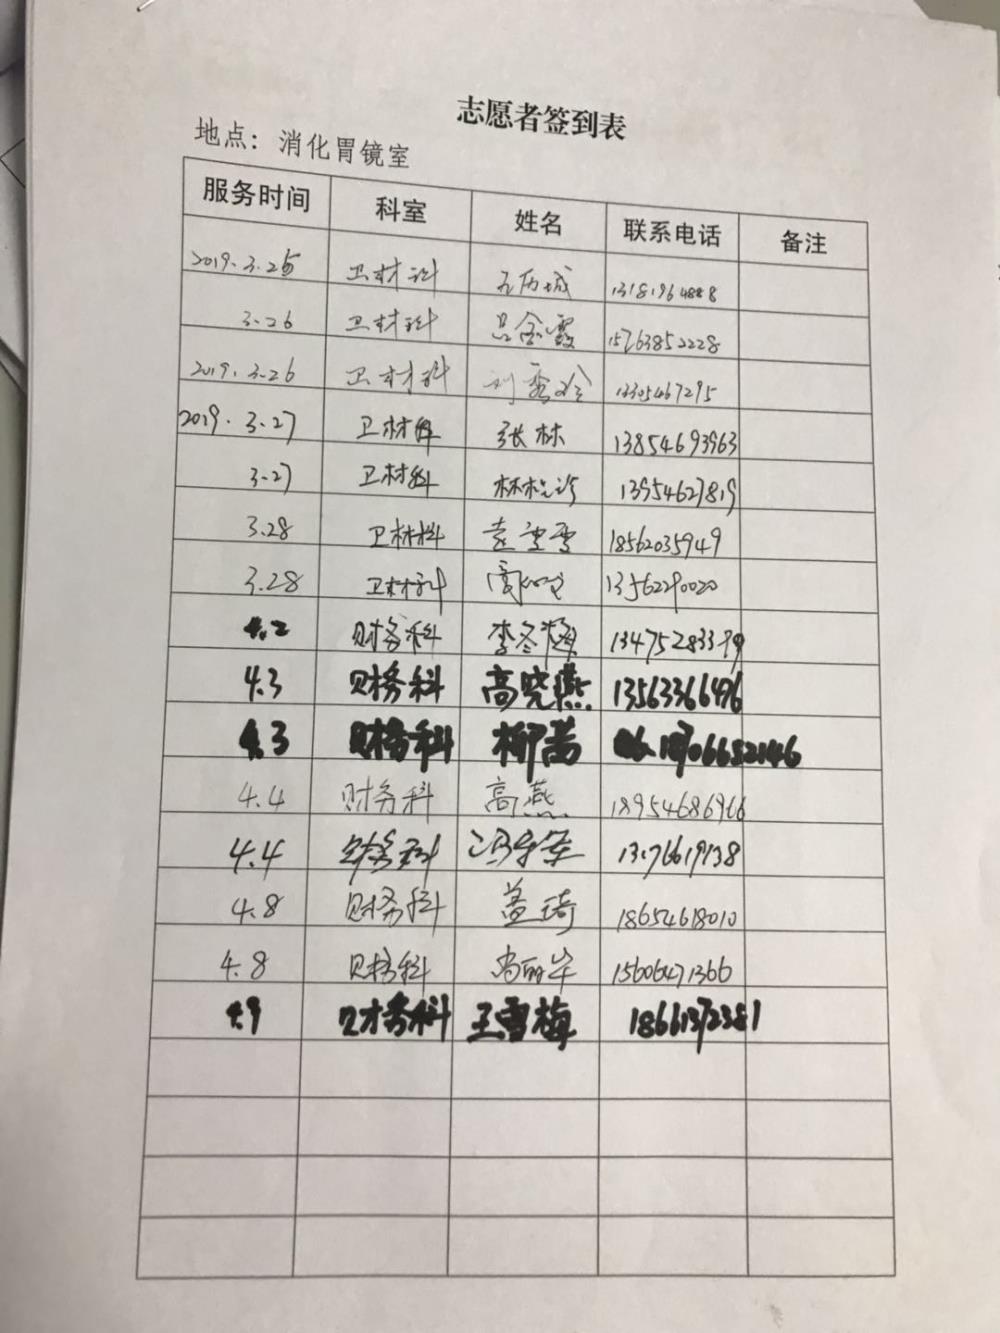 志愿者签到表
地点：消化胃镜室
服务时间 科室 姓名 联系电话 备注
2019.3.25 卫材科 13181964888
3.26 卫材科 吕金霞 15763852228
2019.3.26 卫材科 刘秀玲 13305467295
2019.3.27 卫材科 张林 13854693963
3.27 卫材科 13954627819
3.28 卫材科 袁雪雪 18562035949
3.28 卫材科 13562290020
4.2 财务科 李冬梅 13475283379
4.3 财务科 高晓燕 13563366496
4.3 财务科 柳茜
4.4 财务科 高燕 18954686966
4.4 财务科
4.8 财务科 盖琦 18654618010
4.8 财务科 尚丽华 15606471366
4.9 财务科 王雪梅 18661372381